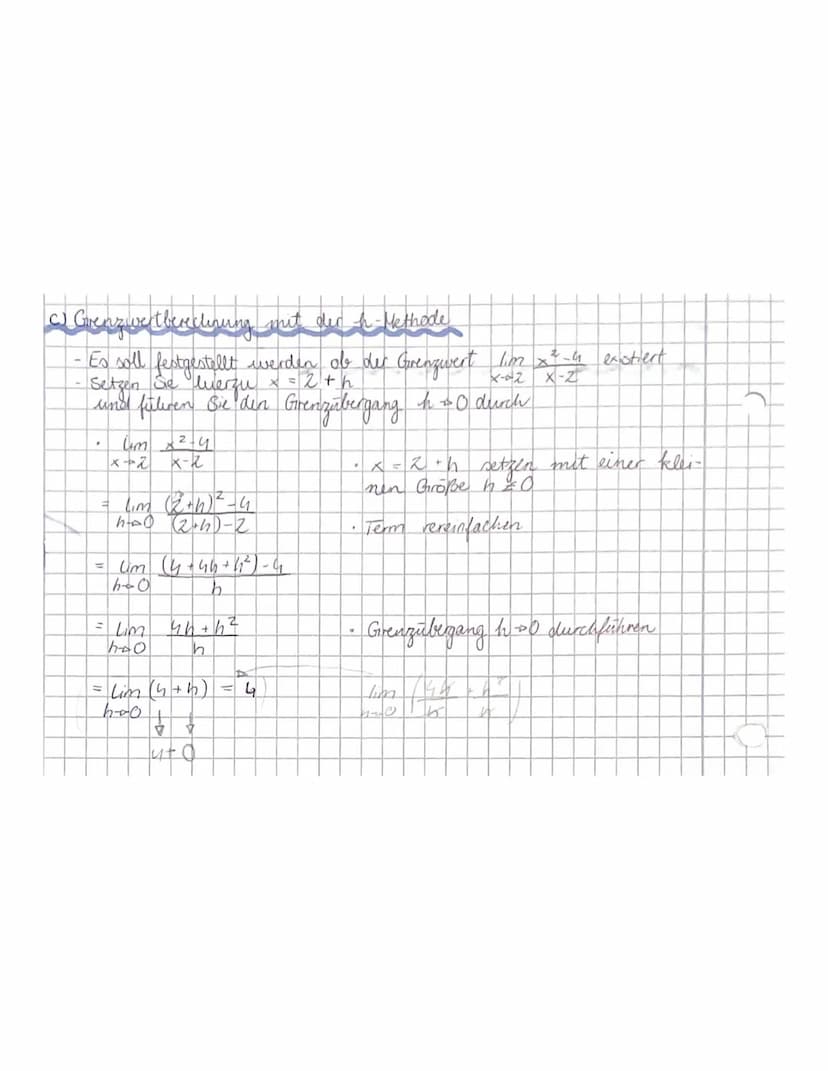 c) Grenzwertberechnung mit der h-Methode
- Es soll festgestellt werden, ob der Grenzwert lim x→2 (x²-4)/(x-2) existiert
- Setzen Sie hierzu x = 2 + h
und führen Sie den Grenzübergang h→0 durch
· lim x→2 (x²-4)/(x-2)
· x = 2 + h setzen mit einer klei-
nen Größe h ≠ 0
= lim h→0 ((2+h)²-4)/((2+h)-2)
· Term vereinfachen
= lim h→0 ((4+4h+h²)-4)/h
= lim h→0 (4h+h²)/h
· Grenzübergang h→0 durchführen
= lim h→0 (4+h) = 4
lim h→0 (4h/h + h²/h)
↓ ↓
4+0